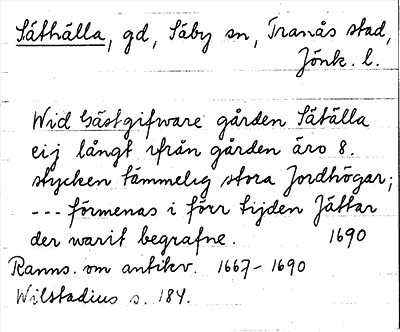 Säthälla, gd, Säby sn, Tranås stad,
Jönk. l.
Wid Gästgifware gården Sätälla
eij långt ifrån gården äro 8.
stycken tämmelig stora Jordhögar;
--- förmenas i förr tijden Jättar
der warit begrafne. 1690
Ranns. om antikv. 1667-1690
Wilstadius s. 184.